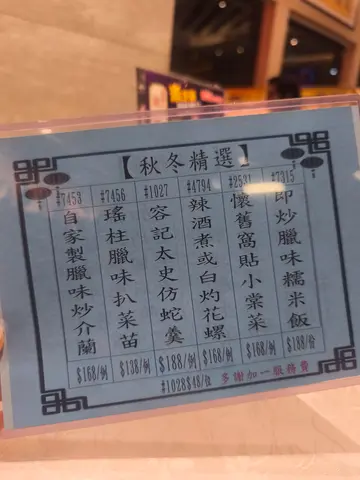 【秋冬精選】
#7315
即炒臘味糯米飯
$188/份
#2531
懷舊窩貼小棠菜
$168/例
#4794
辣酒煮或白灼花螺
$168/例
#1027
容記太史仿蛇羹
$188/例
#1028$48/位
#7456
瑤柱臘味扒菜苗
$138/例
#7453
自家製臘味炒介蘭
$168/例
多謝加一服務費